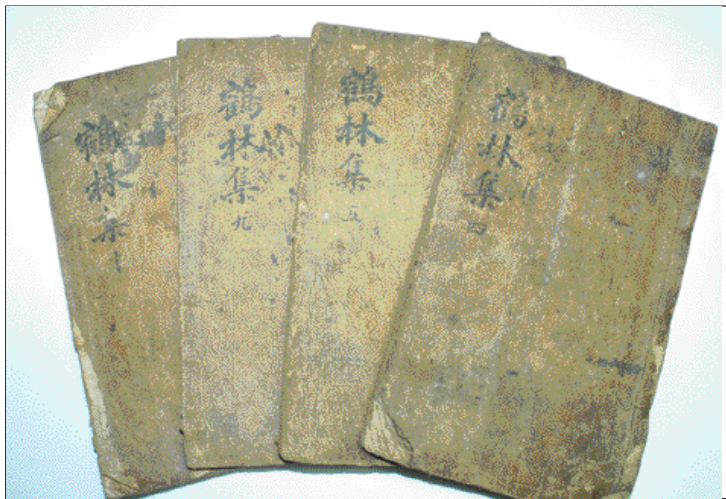 鶴林集十
鶴林集九
鶴林集五
鶴林集四